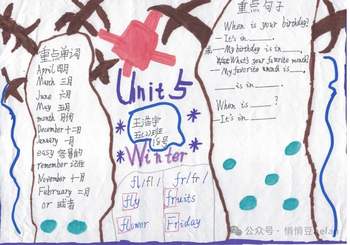 重点单词
April 四月
March 三月
June 六月
May 五月
month 月份
December 十二月
January 一月
easy 容易的
remember 记住
November 十一月
February 二月
or 或者
Unit 5
Winter
fl/fl/
fly
flower
fr/fr/
fruits
Friday
重点句子
When is your birthday?
—It's in
—My birthday is in
What's your favourite month?
—My favorite month is
is in
When is ?
—It's in
公众号·悄悄豆aefan